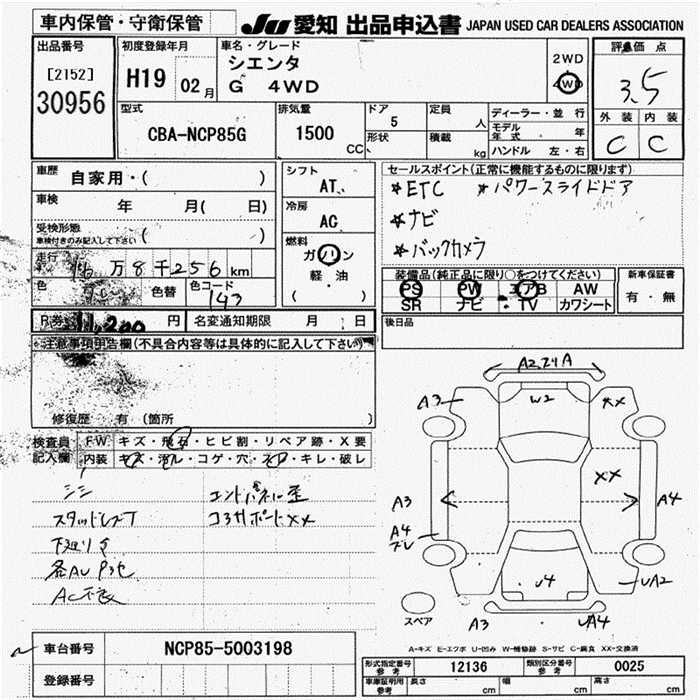 車内保管・守衛保管
JU 愛知 出品申込書 JAPAN USED CAR DEALERS ASSOCIATION
出品番号
[2152]
30956
初度登録年月
H19 02月
車名・グレード
シエンタ
G 4WD
2WD
4WD
評価点
3.5
外装 内装
C C
型式
CBA-NCP85G
排気量
1500 CC
ドア
5
形状
定員
人
積載
kg
ディーラー・並行
モデル年式 年
ハンドル 左・右
車歴
自家用・( )
車検 年 月( 日)
受検形態
車検付きのみ記入して下さい ( )
走行
16万8千256km
色 色替 色コード
143
シフト
AT
冷房
AC
燃料
ガソリン
軽・油
( )
セールスポイント(正常に機能するものに限ります)
*ETC *パワースライドドア
*ナビ
*バックカメラ
装備品(純正品に限り○をつけてください)
PS PW エアB AW
SR ナビ・TV カワシート
新車保証書
有・無
R券 円
名変通知期限 月 日
後日品
注意事項申告欄(不具合内容等は具体的に記入して下さい)
修復歴 有(箇所 )
検査員記入欄
FW キズ・飛石・ヒビ割・リペア跡・X要
内装 キズ・汚レ・コゲ・穴・ネジ・キレ・破レ
シミ
スタッドレスT
下廻りサ
各AU Pサビ
AC不良
エンドパネル歪
コアサポートXX
A2 A
A3
W2
XX
XX
A3
A4
A4
ズレ
U4
UA2
スペア
A3
UA4
A-キズ E-エクボ U-凹み W-補修跡 S-サビ C-腐食 XX-交換済
車台番号
NCP85-5003198
登録番号
形式指定番号
参考
12136
類別区分番号
参考
0025
車庫証明用
参考
長さ cm 幅 cm 高さ cm